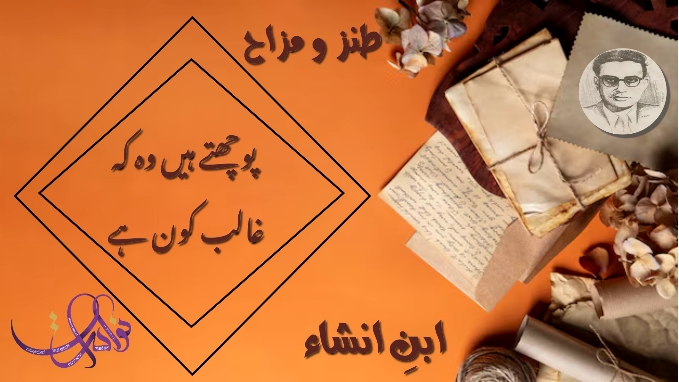 طنز و مزاح
پوچھتے ہیں وہ کہ
غالب کون ہے
ابنِ انشاء